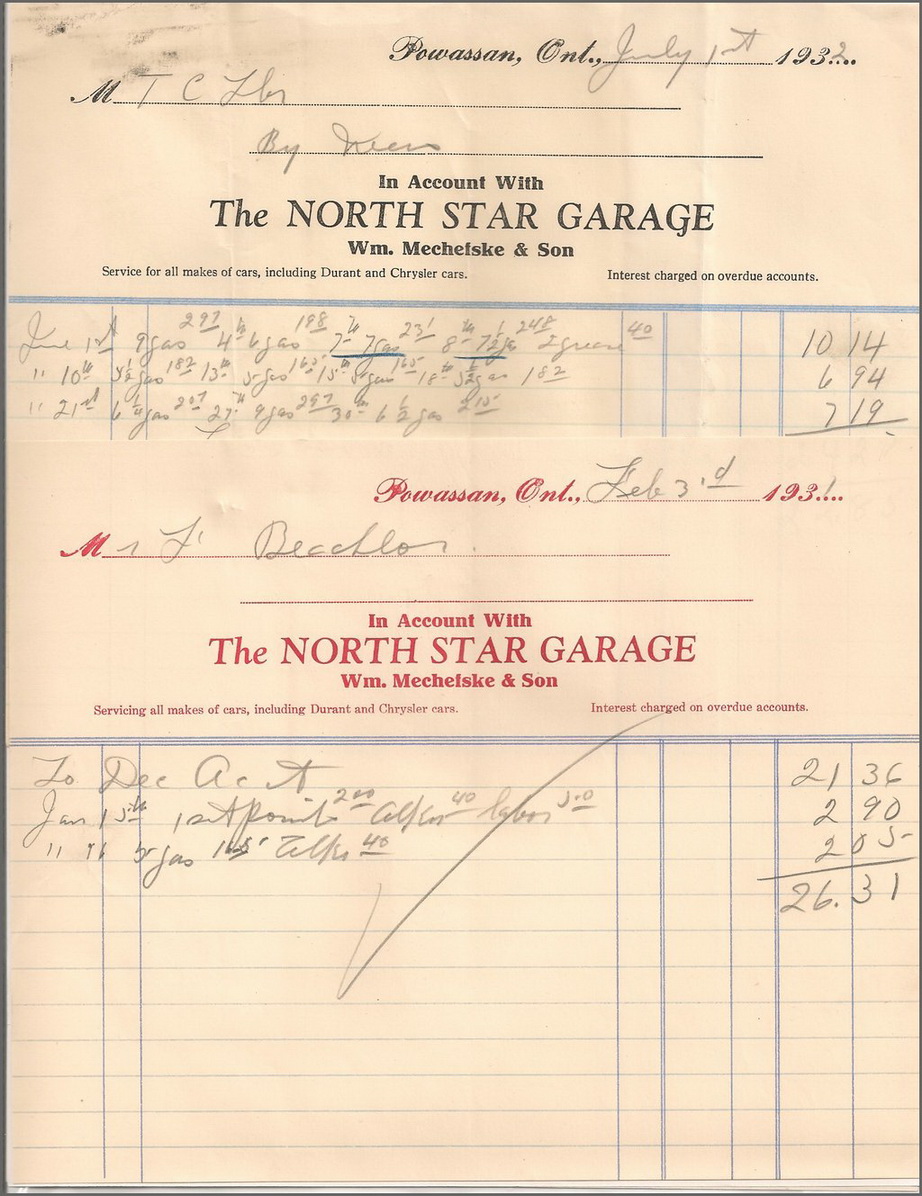 Powassan, Ont., July 1st 1932
M T C
By
In Account With
The NORTH STAR GARAGE
Wm. Mechefske & Son
Service for all makes of cars, including Durant and Chrysler cars. Interest charged on overdue accounts.
June 1st 9 gas 297 4th 6 gas 198 7th 7 gas 231 8th 7½ gas 248 2 grease 40 10 14
" 10th 5½ gas 182 13th 5 gas 165 15th 5 gas 165 18th 5½ gas 182 6 94
" 21st 6¼ gas 207 27th 9 gas 297 30th 6½ gas 215 7 19
Powassan, Ont., Feb 3rd 1931
Mr F
In Account With
The NORTH STAR GARAGE
Wm. Mechefske & Son
Servicing all makes of cars, including Durant and Chrysler cars. Interest charged on overdue accounts.
To Dec Acct 21 36
Jan 15th 1 set points 200 40 labor 50 2 90
" 5 gas 165 40 2 05
26.31